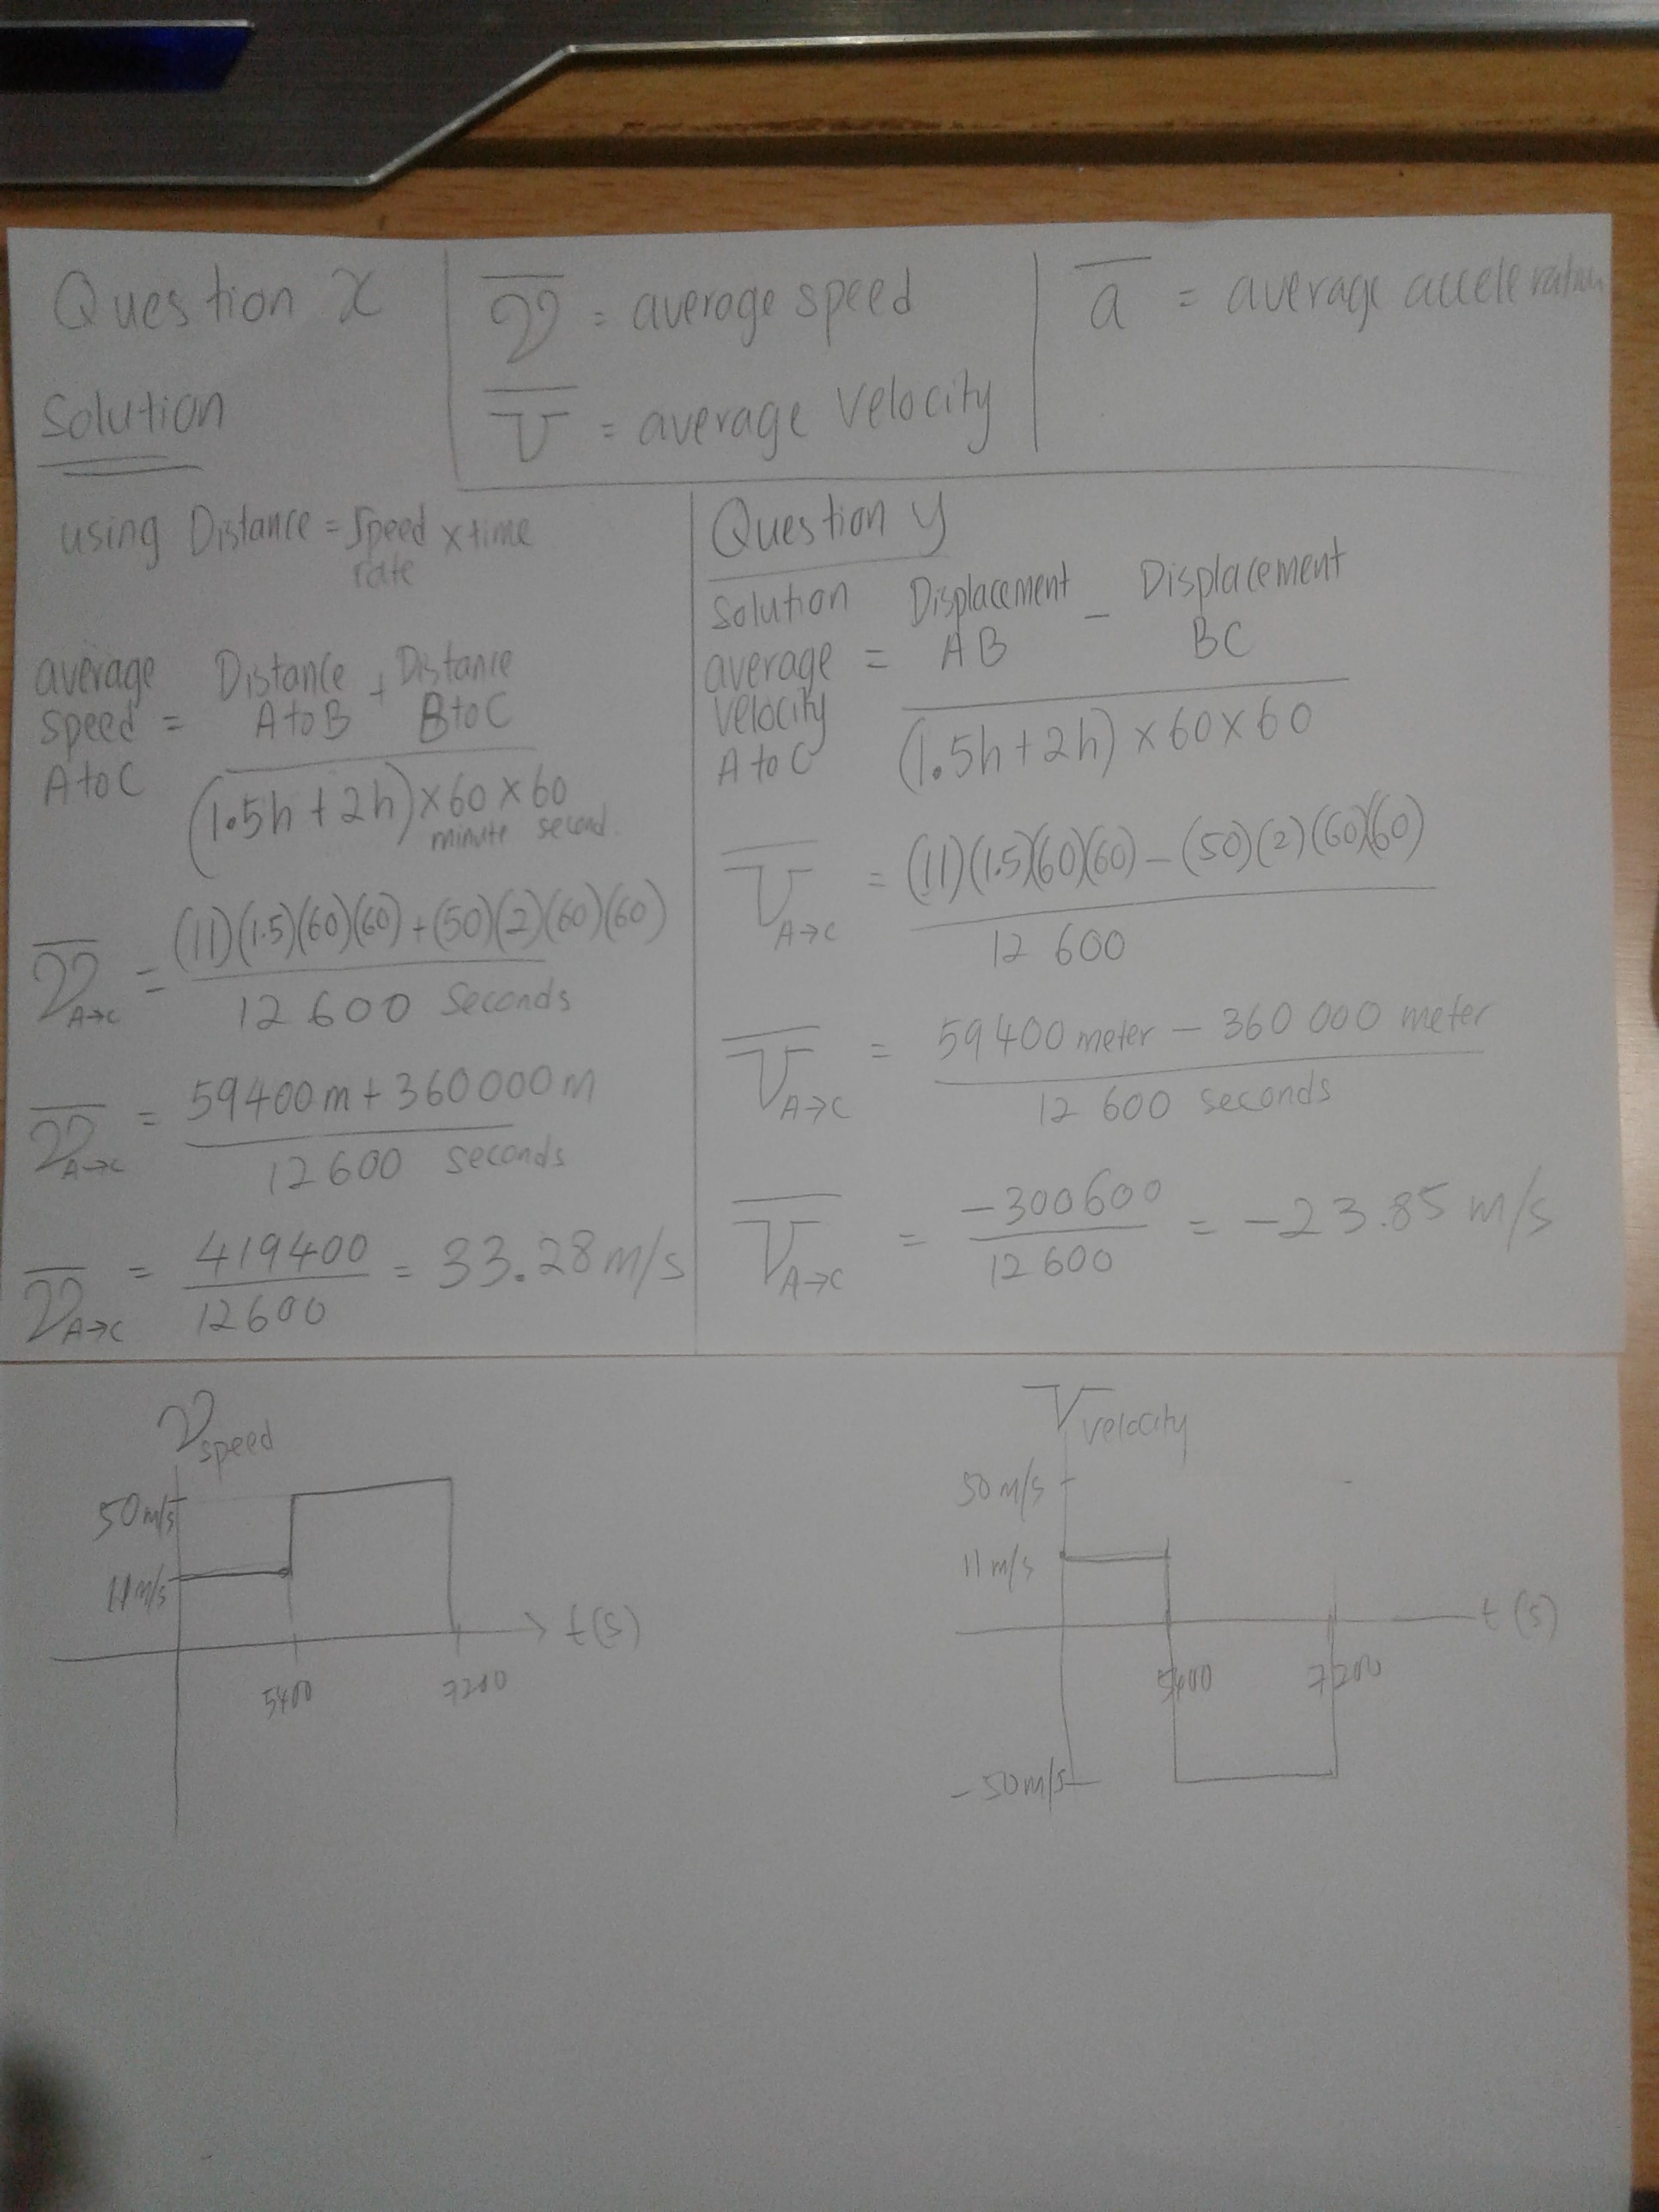 Question x
Solution
v̅ = average speed
V̅ = average velocity
a̅ = average acceleration
using Distance = speed × time
rate
average
speed =
A to C
Distance + Distance
A to B B to C
(1.5h + 2h) × 60 × 60
minute second
v̅ A→C = (11)(1.5)(60)(60) + (50)(2)(60)(60)
12 600 seconds
v̅ A→C = 59400m + 360000m
12600 seconds
v̅ A→C = 419400 = 33.28 m/s
12600
Question y
Solution
average =
velocity
A to C
Displacement – Displacement
AB BC
(1.5h + 2h) × 60 × 60
V̅ A→C = (11)(1.5)(60)(60) – (50)(2)(60)(60)
12 600
V̅ A→C = 59400 meter – 360 000 meter
12 600 seconds
V̅ A→C = –300600 = –23.85 m/s
12600
v speed
50m/s
11m/s
t(s)
5400 7200
V velocity
50m/s
11m/s
t(s)
5400 7200
–50m/s